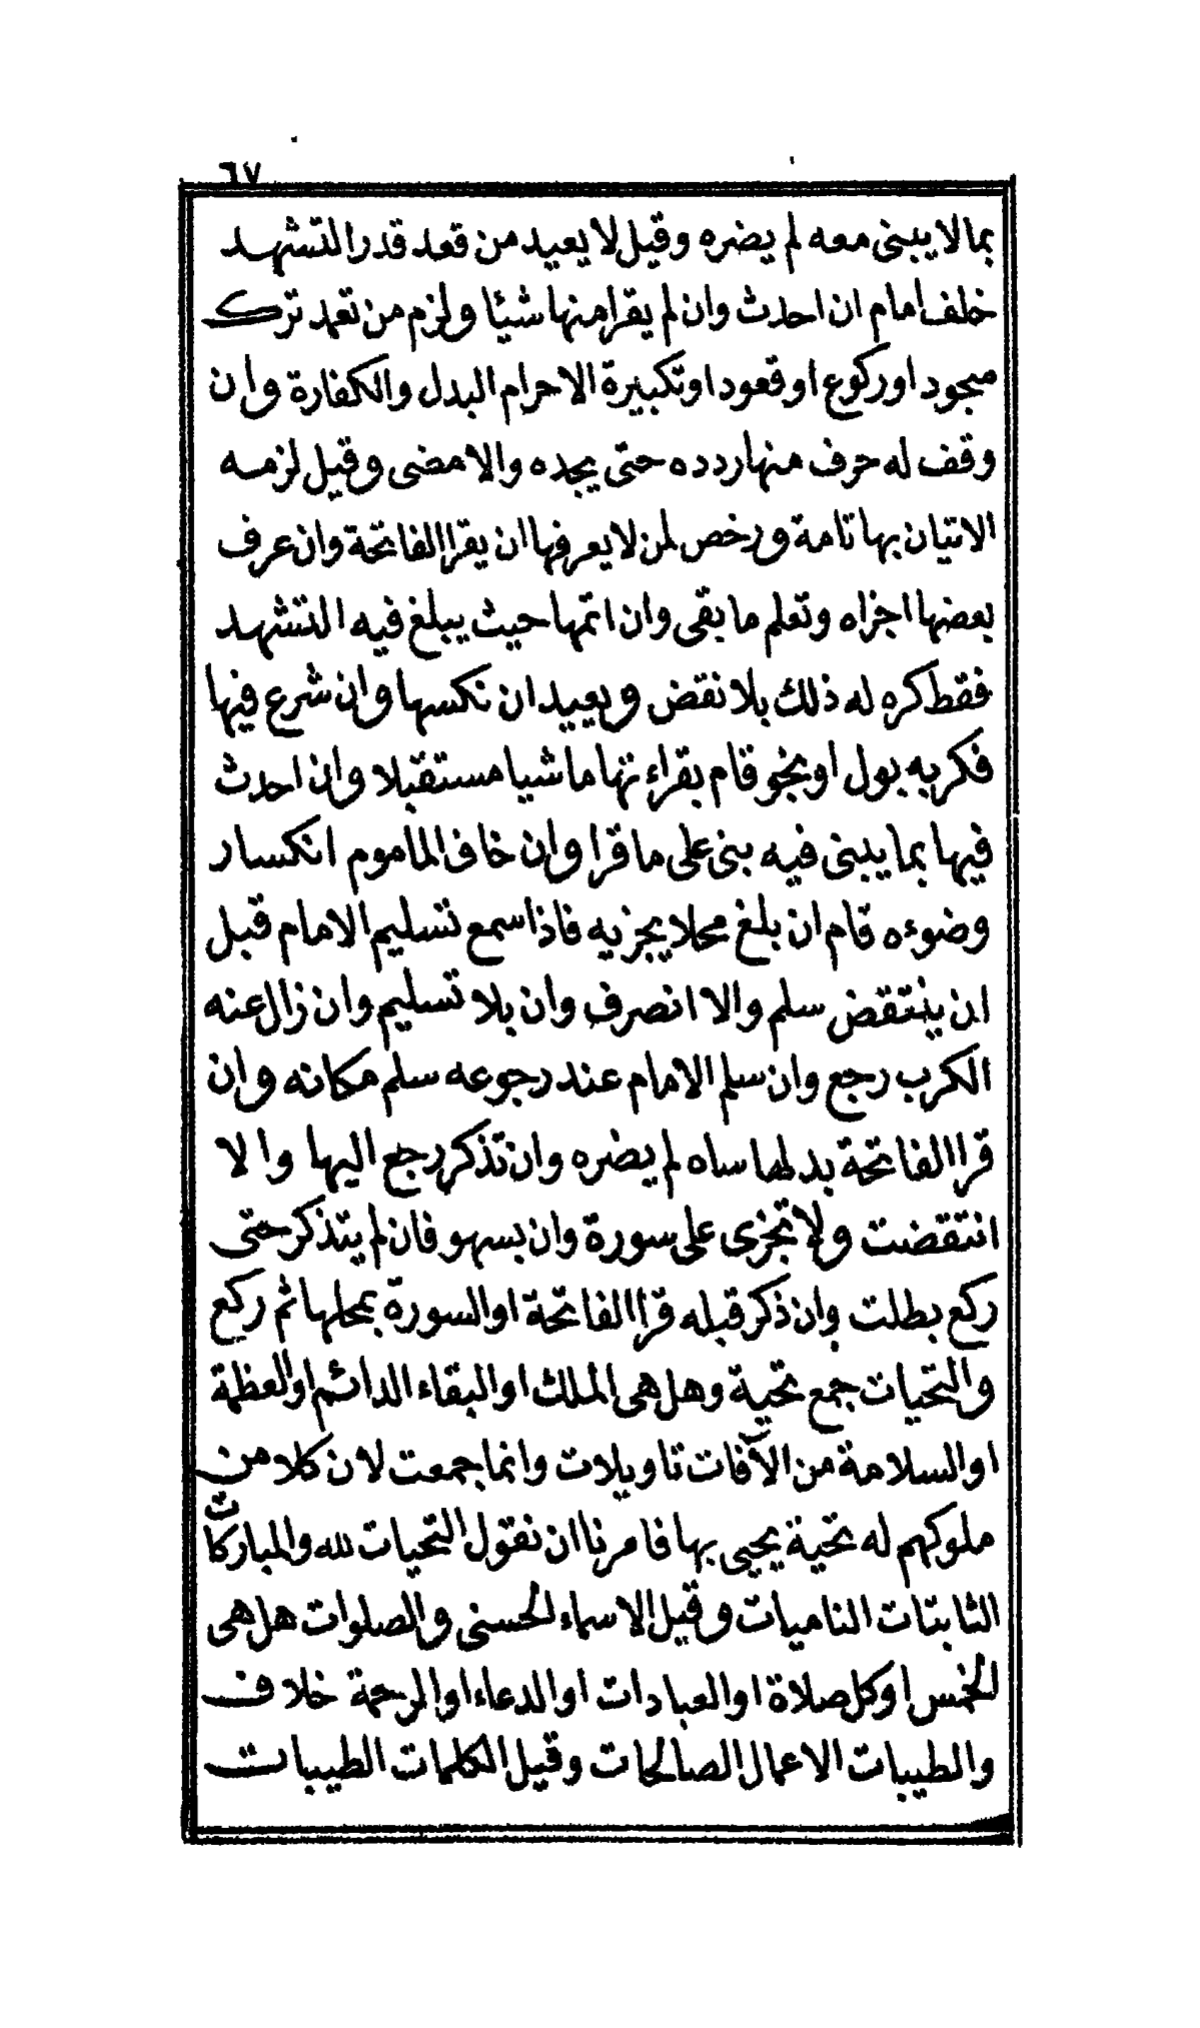 ٦٧
بما لا يبنى معه لم يضره وقيل لا يعيد من قعد قدر التشهد
خلف امام ان احدث وان لم يقرا منها شيئا ولزم من تعمد ترك
سجود او ركوع او قعود او تكبيرة الاحرام البدل والكفارة وان
وقف له حرف منها ردده حتى يجده والا مضى وقيل لزمه
الاتيان بها تامة ورخص لمن لا يعرفها ان يقرا الفاتحة وان عرف
بعضها اجزاه وتعلم ما بقى وان اتمها حيث يبلغ فيه التشهد
فقط كره له ذلك بلا نقض ويعيد ان نكسها وان شرع فيها
فكر به بول او نجو قام بقراءتها ماشيا مستقبلا وان احدث
فيها بما يبنى فيه بنى على ما قرا وان خاف الماموم انكسار
وضوءه قام ان بلغ محلا يجزيه فاذا سمع تسليم الامام قبل
ان ينتقض سلم والا انصرف وان بلا تسليم وان زال عنه
الكرب رجع وان سلم الامام عند رجوعه سلم مكانه وان
قرا الفاتحة بدلها ساه لم يضره وان تذكر رجع اليها والا
انتقضت ولا تجزى على سورة وان بسهو فان لم يتذكر حتى
ركع بطلت وان ذكر قبله قرا الفاتحة او السورة بمحلها ثم ركع
والتحيات جمع تحية وهل هى الملك او البقاء الدائم او العظمة
او السلامة من الآفات تاويلات وانما جمعت لان كلا من
ملوكهم له تحية يحيى بها فامرنا ان نقول التحيات لله والمباركات
الثابتات الناميات وقيل الاسماء الحسنى والصلوات هل هى
الخمس او كل صلاة او العبادات او الدعاء او الرحمة خلاف
والطيبات الاعمال الصالحات وقيل الكلمات الطيبات